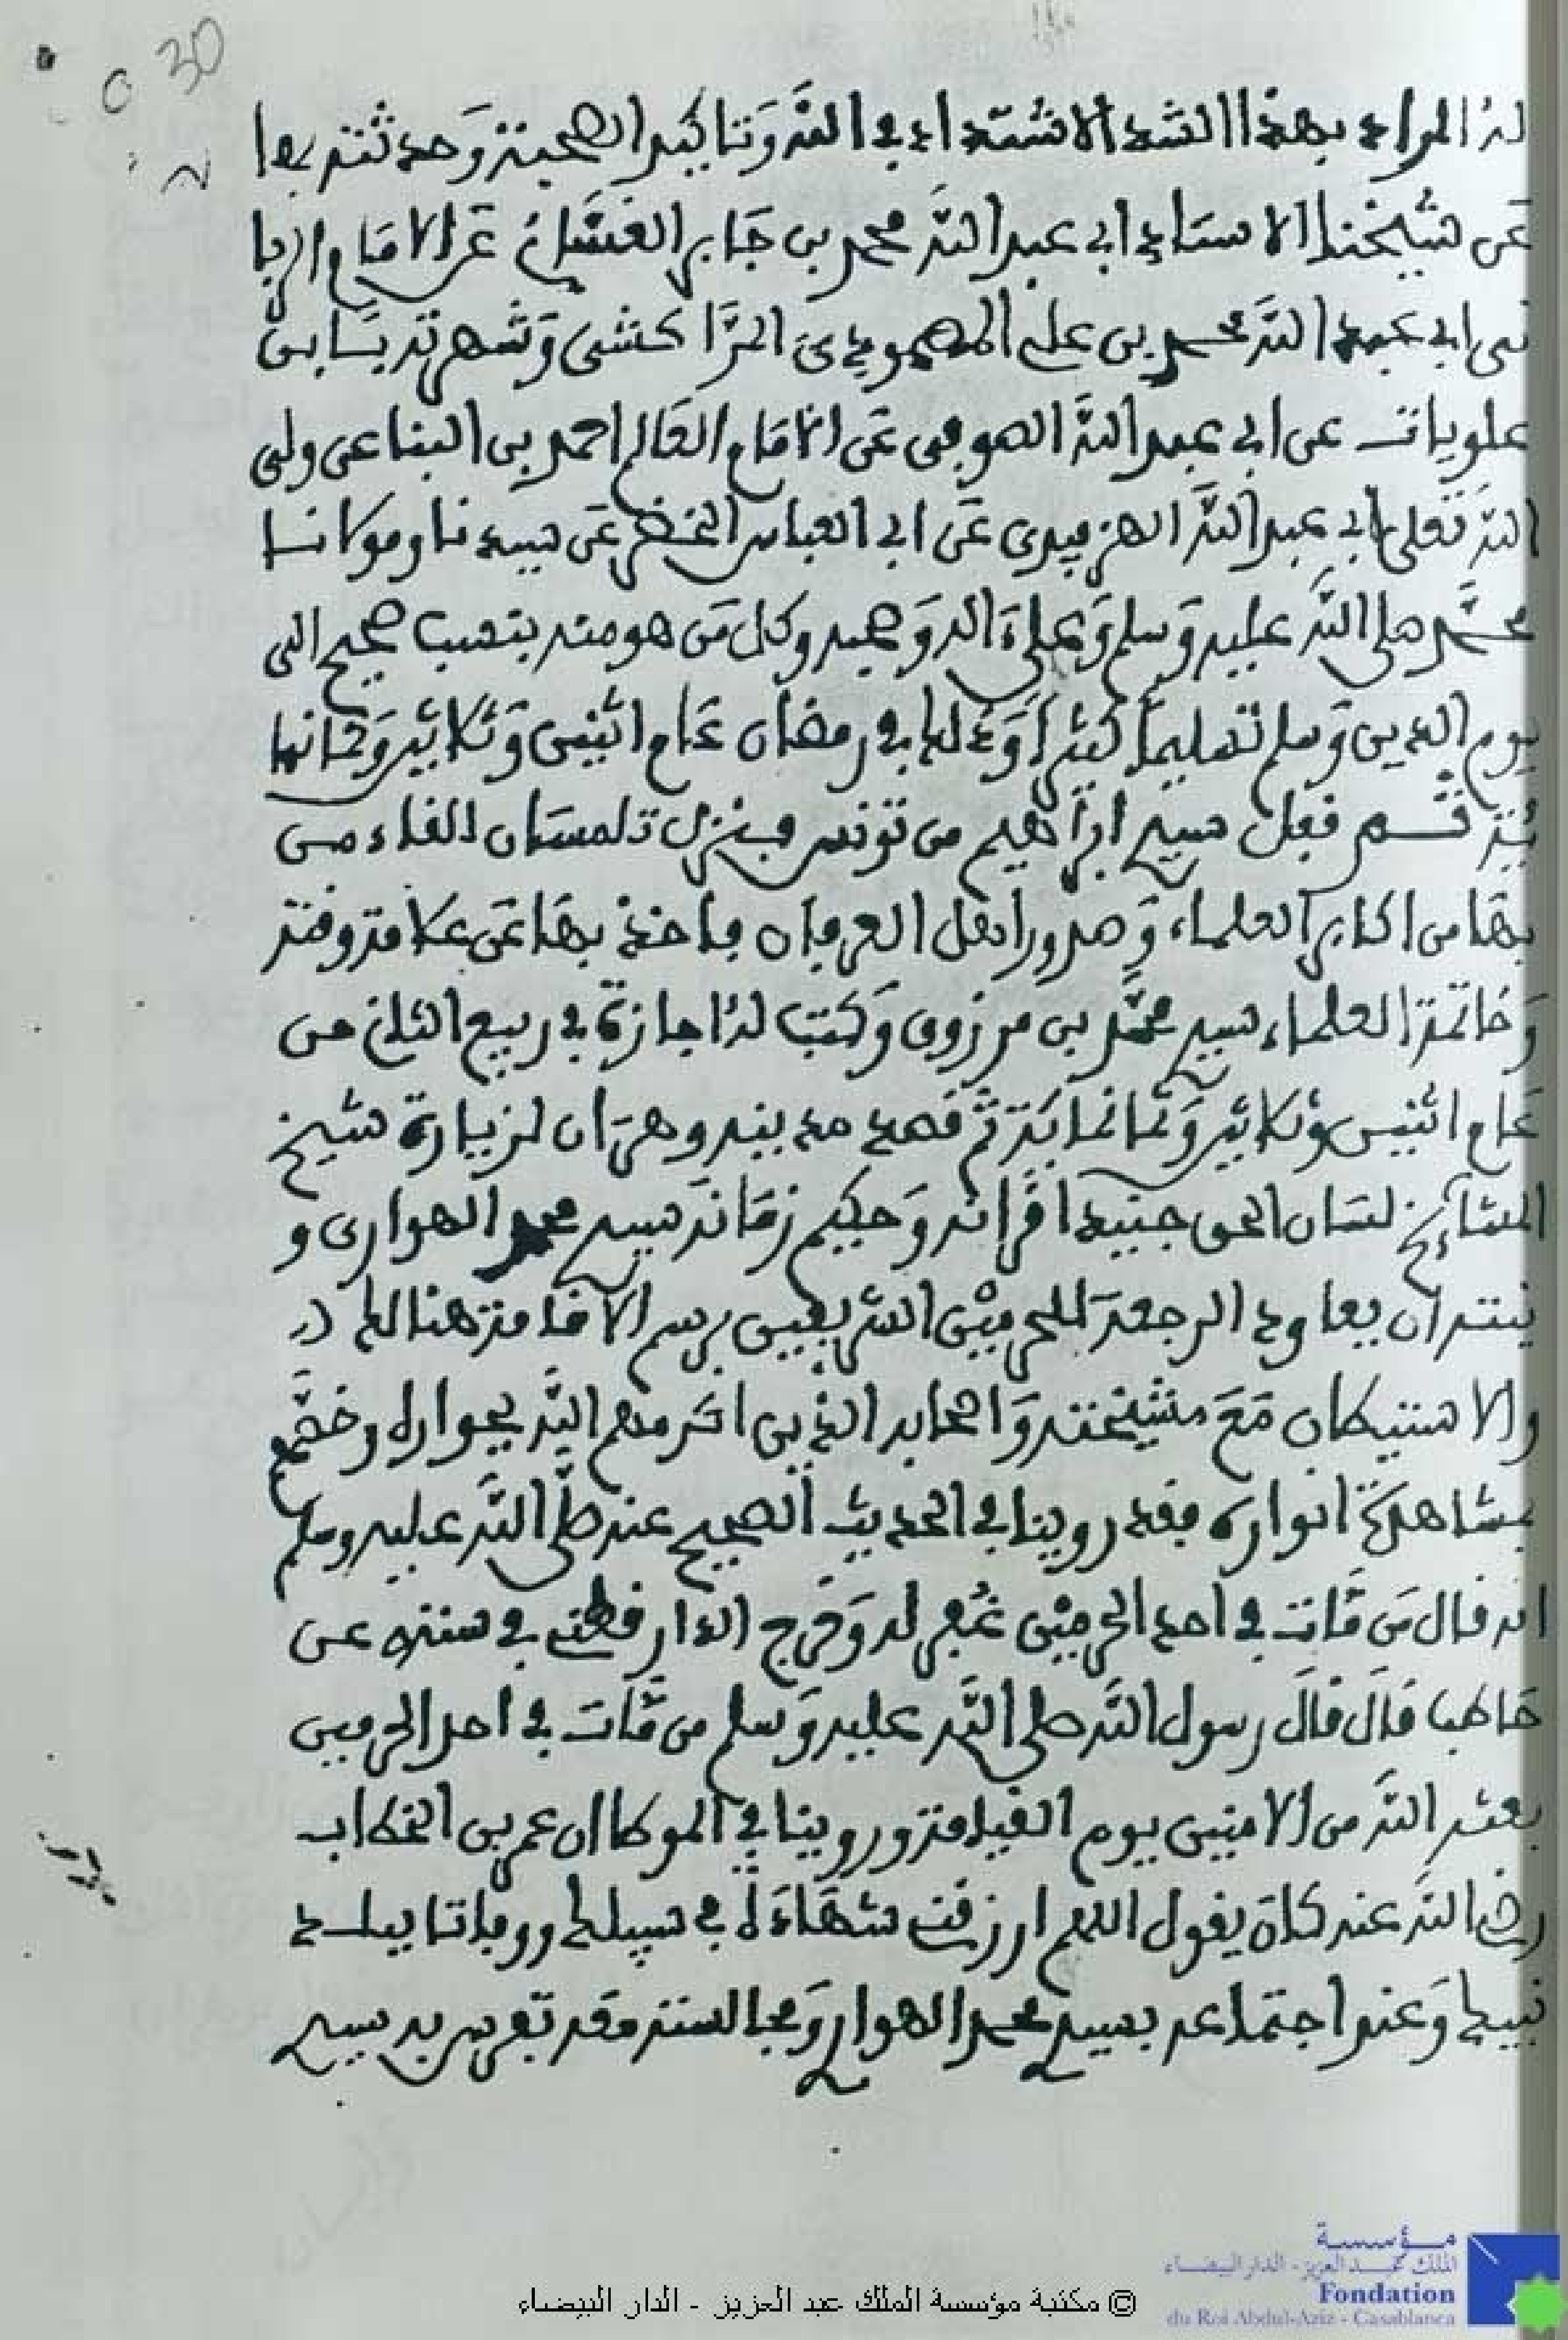 30
له المراد بهذا الشد الاشتداد في الله وتاكيد الصحبة وحدثته بها
عن شيخنا الاستاذ ابي عبد الله محمد بن جابر الغساني عن الامام الربا
ني ابي عبد الله محمد بن علي المصمودي المراكشي وشهرته بابن
علويات عن ابي عبد الله الصوفي عن الامام العالم احمد بن البنا عن ولي
الله تعلى ابي عبد الله الهزميري عن ابي العباس الخضر عن سيدنا ومولانا
محمد صلى الله عليه وسلم وعلى ءاله وصحبه وكل من هو منه بنسب صحيح الى
يوم الدين وسلم تسليما كثيرا وذلك في رمضان عام اثنين وثلاثين وثمانما
ئة ثم قفل سيدي ابراهيم من تونس فنزل تلمسان فلقا من
بها من اكابر العلماء وصدور اهل العرفان فاخذ بها عن علامة وقته
وخاتمة العلماء سيدي محمد بن مرزوق وكتب له اجازة في ربيع الثاني من
عام اثنين وثلاثين وثمانمائة ثم قصد مدينة وهران لزيارة شيخ
المشائخ لسان الحق جنيد اقرانه وحكيم زمانه سيدي محمد الهواري و
نيته ان يعاود الرجعة للحرمين الشريفين برسم الاقامة هنالك
والاستيطان مع مشيخته واصحابه الذين اكرمهم الله بجواره وخصهم
بمشاهدة انواره فقد روينا في الحديث الصحيح عنه صلى الله عليه وسلم
انه قال من مات في احد الحرمين غفر له وخرج الدارقطني في سننه عن
حاطب قال قال رسول الله صلى الله عليه وسلم من مات في احد الحرمين
بعثه الله من الامنين يوم القيامة وروينا في الموطا ان عمر بن الخطاب
رضي الله عنه كان يقول اللهم ارزقني شهادة في سبيلك ووفاتا ببلد
نبيك وعند اجتماعه بسيدي محمد الهواري ومجالسته وقد تفرس به سيدي
© مكتبة مؤسسة الملك عبد العزيز - الدار البيضاء
مؤسسة
الملك عبد العزيز - الدار البيضاء
Fondation
du Roi Abdul-Aziz - Casablanca